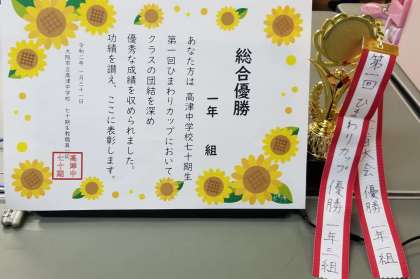 総合優勝
一年　組
あなた方は 高津中学校七十期生
第一回ひまわりカップにおいて
クラスの団結を深め
優秀な成績を収められました。
功績を讃え、ここに表彰します。
大阪市立高津中学校 七十期生教職員
高津中
七十期
第一回ひまわりカップ 優勝 一年三組
大会 優勝 一年 組